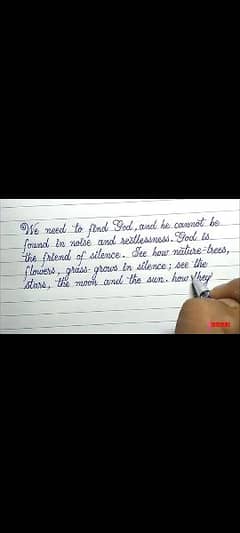 We need to find God, and he cannot be
found in noise and restlessness. God is
the friend of silence. See how nature-trees,
flowers, grass-grows in silence; see the
stars, the moon and the sun. how they